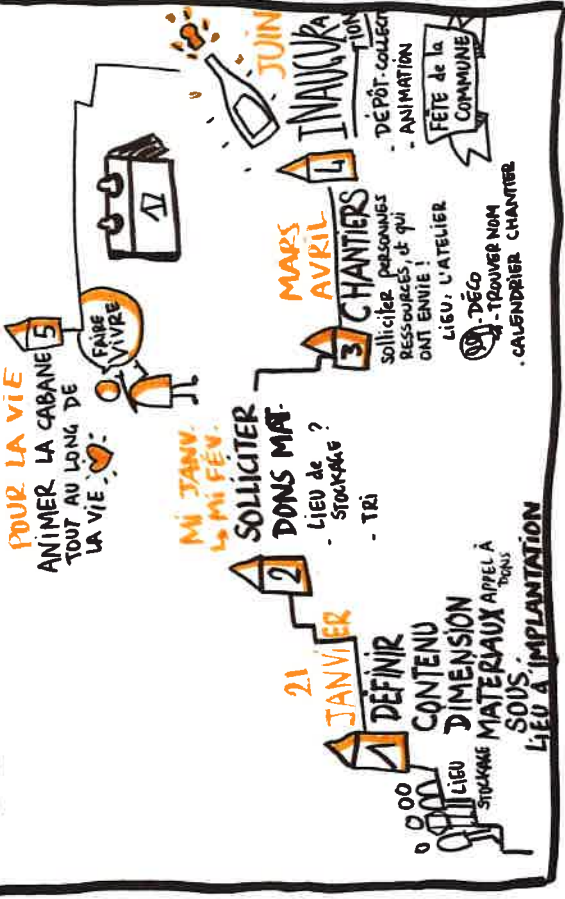 21
JANVIER
1
DÉFINIR
CONTENU
DIMENSION
LIEU
STOCKAGE MATERIAUX APPEL À
DONS
SOUS.
LIEU & IMPLANTATION
MI JANV.
↳ MI FÉV.
2
SOLLICITER
DONS MAT.
- LIEU de
STOCKAGE ?
- TRI
MARS
AVRIL
3
CHANTIERS
solliciter personnes
RESSOURCES, et qui
ONT ENVIE !
LIEU: L'ATELIER
- DÉCO
- TROUVER NOM
. CALENDRIER CHANTIER
JUIN
4
INAUGURA
TION
- DÉPÔT-COLLECT
- ANIMATION
FÊTE de la
COMMUNE
POUR LA VIE
5
ANIMER LA CABANE
TOUT AU LONG DE
LA VIE
FAIRE
VIVRE
12